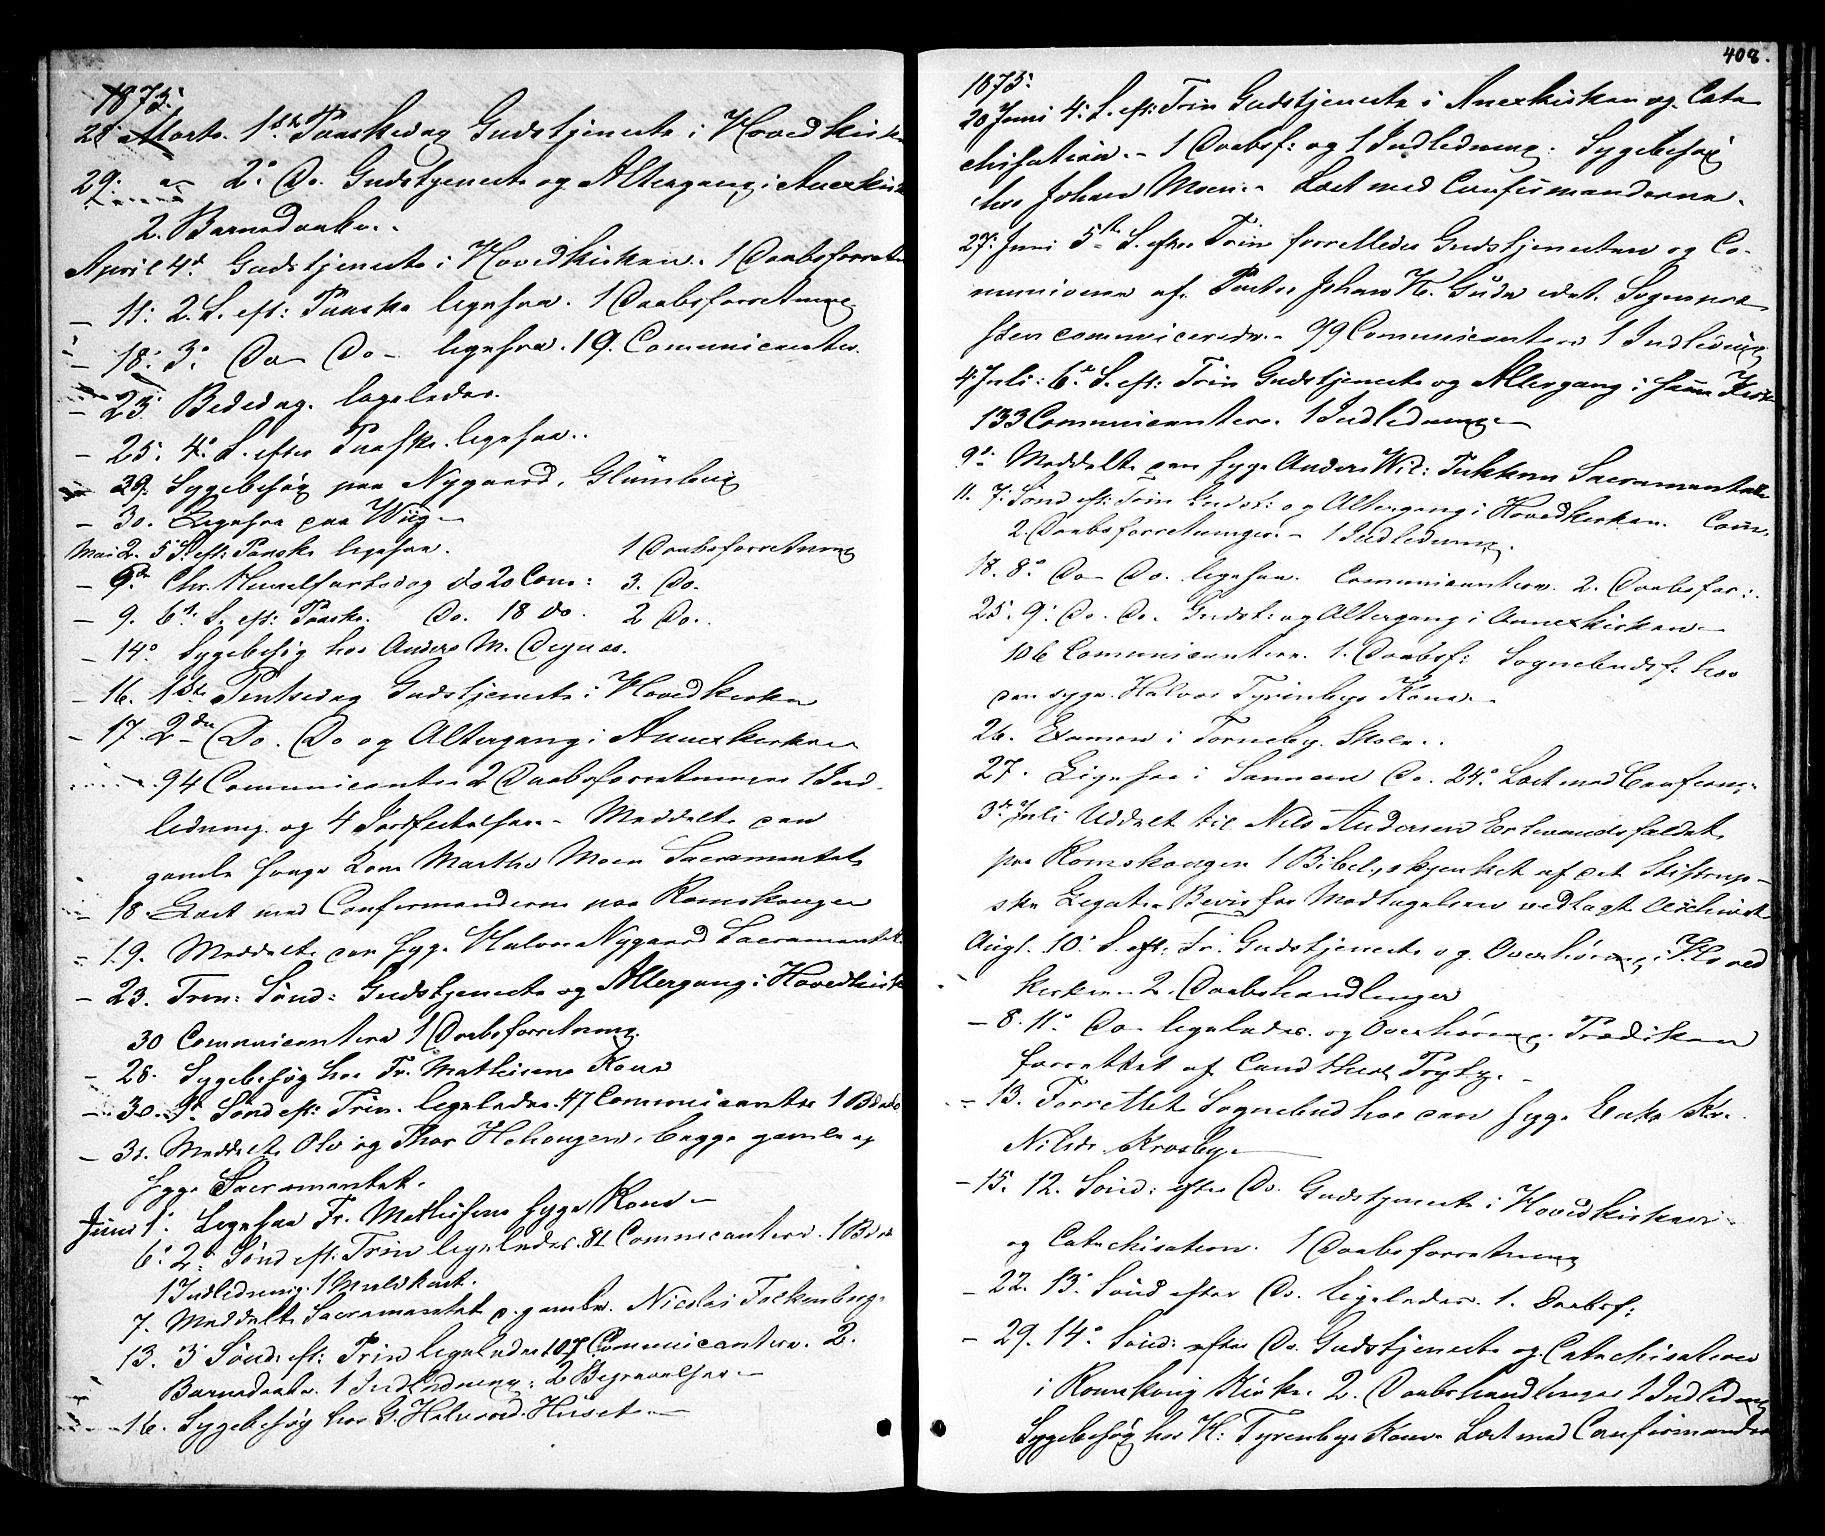 1875.
28. Marts. 1ste Paaskedag Gudstjeneste i Hovedkirk
29. " 2. Do. Gudstjeneste og Altergang i Anexkirk
2. Barnedaabe.
April 4de Gudstjeneste i Hovedkirken. 1 Daabsforretn
– 11. 2. S. eft: Paaske ligesaa. 1 Daabsforretning
– 18. 3. Do Do – ligesaa. 19. Communicanter.
– 23. Bededag. ligeledes.
– 25. 4. S. efter Paaske ligesaa.
– 29. Sygebesøg paa Nygaard,
– 30. Ligesaa paa Wiig –
Mai 2. 5 S. eft: Paaske ligesaa. 1 Daabsforretning
– Chr. Himmelfartsdag do 20 Com: 3. Do.
– 9. 6te S. eft: Paaske. Do. 18 do. 2 Do.
– 14. Sygebesøg hos Anders M.
– 16. 1ste Pintsedag Gudstjeneste i Hovedkirken
– 17. 2den Do. Do og Altergang i Annexkirken
94 Communicanter 2 Daabsforretninger 1 Ind-
ledning og 4 Jordfæstelser – Meddelte den
gamle syge Kone Marthe Moen Sacramentet
– 18. Læst med Confirmanderne paa Romskougen
– 19. Meddelte den syge Halvor Nygaard Sacramentet
– 23. Trin: Sønd: Gudstjeneste og Altergang i Hovedkirk
30 Communicanter 1 Daabsforretning.
– 28. Sygebesøg hos Fr. Mathisens Kone
– 30. Sønd eft: Trin. ligeledes. 47 Communicanter 1
– 31. Meddelte Ole og Thor begge gamle og
syge Sacramentet.
Juni 1. Ligesaa Fr. Mathisens syge Kone –
6. 2. Sønd eft: Trin ligeledes. 81 Communicanter. 1
1 Indledning. 1 Muldkast.
7. Meddelte Sacramentet d. gamle. Nicolai Falkenberg.
13. 3 Sønd. eft: Trin ligeledes 107 Communicanter. 2.
Barnedaabe. 1 Indledning: 2 Begravelser –
– 16. Sygebesøg hos G. Halvord. Huset –
408.
1875.
20 Juni 4. S. eft: Trin Gudstjeneste i Anexkirken og Cate
chisation. – 1 Daabsf: og 1 Indledning. Sygebesøg
hos Johan Moen. – Læst med Confirmanderne.
27. Juni 5te S. efter Trin forrettedes Gudstjenesten og Co-
munionen af Pastor Johan H. Gude idet Sognepræ
sten communicerede. – 99 Communicantere 1 Indledning
4. Juli. 6te S. eft: Trin Gudstjeneste og Altergang i samme Kirke
133 Communicantere. 1 Indledning –
9. Meddelte den syge Anders Wil: Tukken Sacramentet
11. 7. Sønd eft: Trin Gudst: og Altergang i Hovedkirken. Com.
2. Daabsforretninger. – 1 Indledning.
18. 8. Do Do. ligesaa. Communicantere. 2. Daabsfor:.
25. 9. Do. Do. Gudst: og Altergang i Annexkirken –
106 Communicantere. 1. Daabsf: Sognebudsf. hos
den syge Halvor Tyrinbys Kone –
26. Examen i Torneby Skole.
27. Ligesaa i Sannem Do. 24. Læst med Confirm:
3de Juli Uddelt til Nils Andersen
paa Romskougen 1 Bibel, skjenket af det Stiftrup-
ske Legat. Bevis for Modtagelsen vedlagt Archivet
Augt. 10. S. eft: Tr. Gudstjeneste og Overhøring i Hoved
kirken. 2. Daabshandlinger
– 8. 11. Do ligeledes. og Overhøring. Prædiken
forrettet af Cand theol
– 13. Forrettet Sognebud hos den syge Enke Kr.
Nilsds Krosby –
– 15. 12. Sønd: efter Do. Gudstjeneste i Hovedkirken
og Catechisation. 1 Daabsforretning
– 22. 13. Sønd efter Do. ligeledes. 1. Daabsf:
– 29. 14. Sønd: efter Do. Gudstjeneste og Catechisation
i Romskoug Kirke. 2. Daabshandlinger 1 Indledning
Sygebesøg hos H: Tyrenbys Kone. Læst med Confirmander